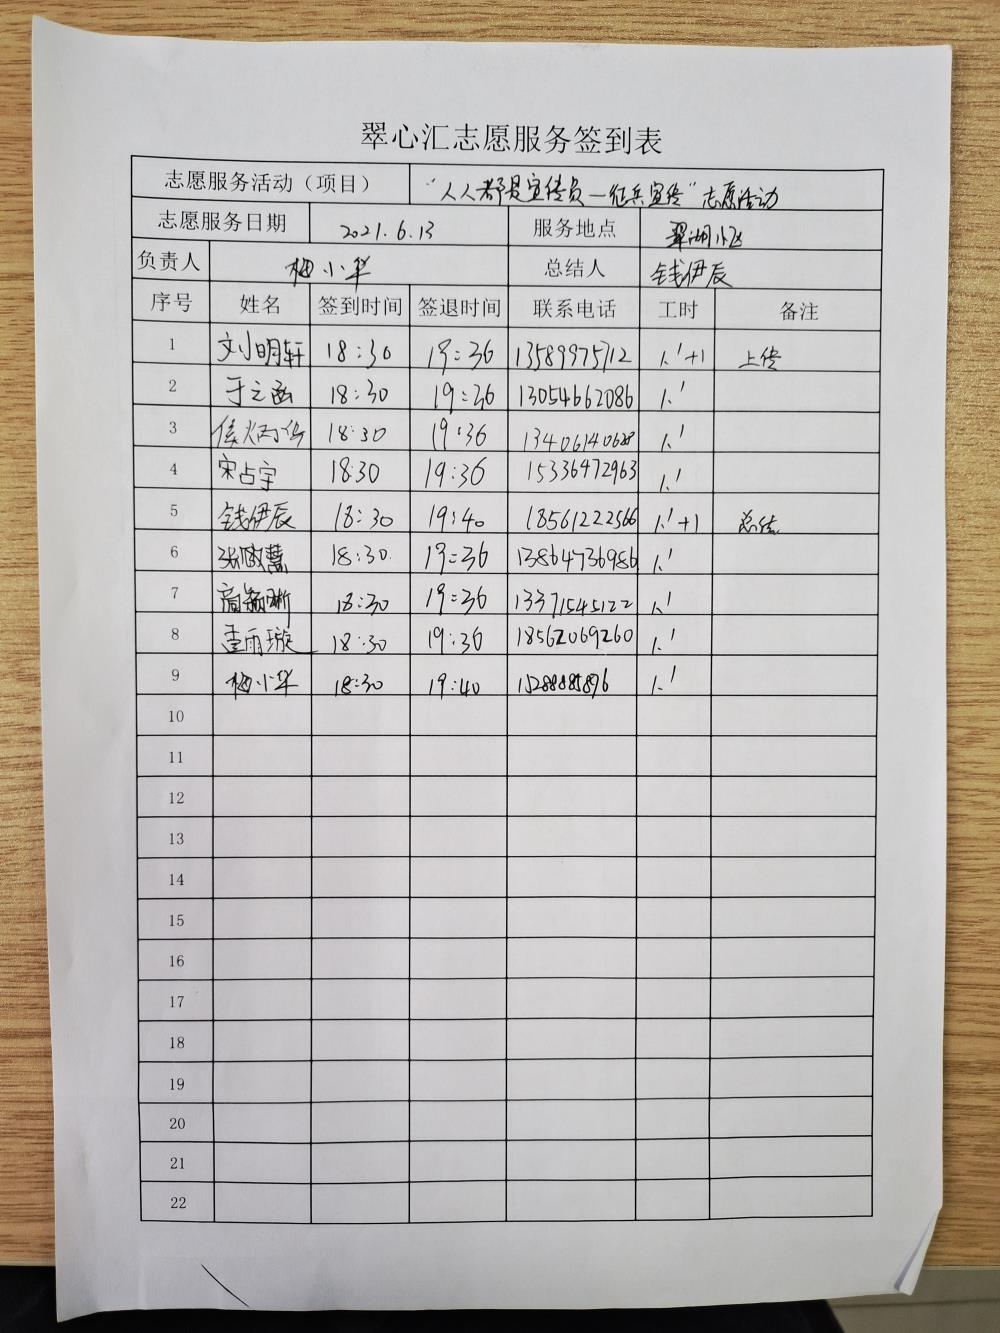 翠心汇志愿服务签到表
志愿服务活动（项目） “人人都是宣传员—征兵宣传”志愿活动
志愿服务日期 2021.6.13 服务地点 翠湖小区
负责人 梅小华 总结人 钱伊辰
序号 姓名 签到时间 签退时间 联系电话 工时 备注
1 刘明轩 18:30 19:36 13589975712 1.1+1 上传
2 于之涵 18:30 19:36 13054662086 1.1
3 18:30 19:36 1.1
4 宋占宇 18:30 19:36 15336472963 1.1
5 钱伊辰 18:30 19:40 18561222566 1.1+1 总结
6 18:30 19:36 13864736986 1.1
7 18:30 19:36 13371545122 1.1
8 18:30 19:36 18562069260 1.1
9 梅小华 18:30 19:40 15288885896 1.1
10
11
12
13
14
15
16
17
18
19
20
21
22